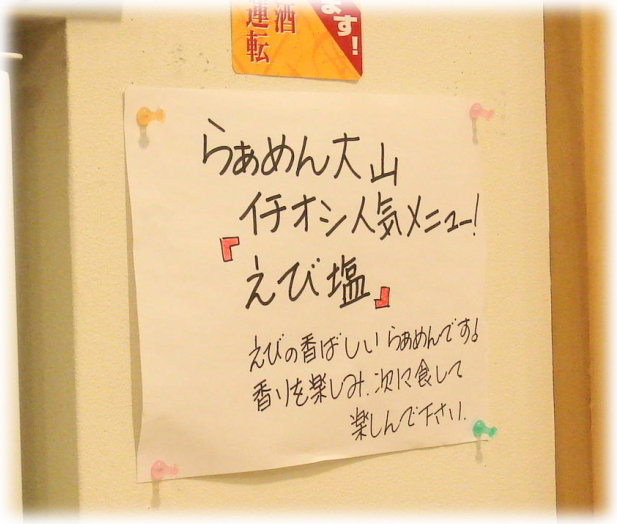 ます!
酒
運転
らぁめん大山
イチオシ人気メニュー!
『えび塩』
えびの香ばしいらぁめんです。
香りを楽しみ、次に食して
楽しんで下さい。